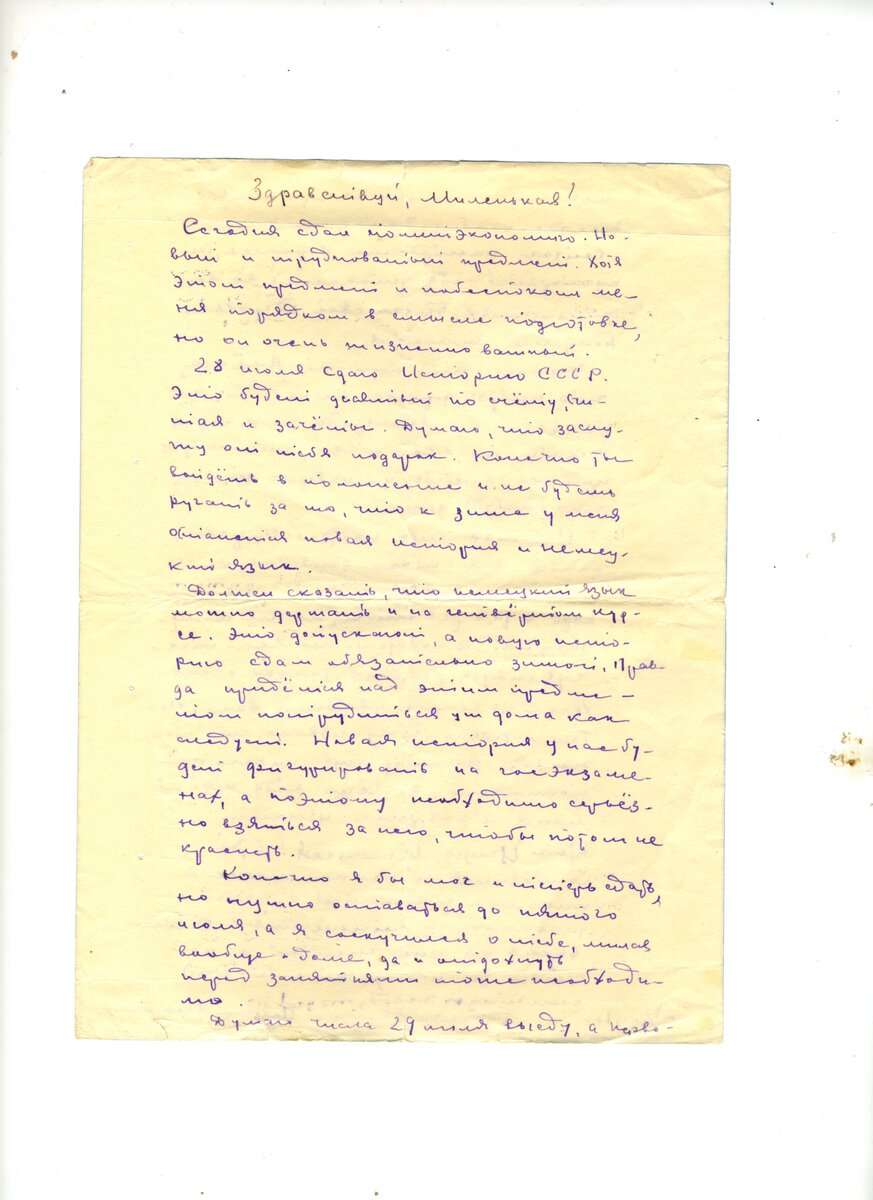 Здравствуй, Миленькая!
Сегодня сдал политэкономию. Но-
вый и трудноватый предмет. Хотя
этот предмет и побеспокоил ме-
ня порядком в смысле подготовке,
но он очень жизненно важный.
28 июля сдаю Историю СССР.
Это будет девятый по счёту, счи-
тая и зачёты. Думаю, что заслу-
жу от тебя подарок. Конечно ты
войдёшь в положение и не будешь
ругать за то, что к зиме у меня
останется новая история и немец-
кий язык.
Должен сказать, что немецкий язык
можно держать и на четвёртом кур-
се. Это допускают, а новую исто-
рию сдам обязательно зимой. Прав-
да придётся над этим предме-
том потрудиться уж дома как
следует. Новая история у нас бу-
дет фигурировать на госэкзаме-
нах, а поэтому необходимо серьёз-
но взяться за него, чтобы потом не
краснеть.
Конечно я бы мог и теперь сдать,
но нужно оставаться до пятого
июля, а я соскучился о тебе, милая
вообще о доме, да и отдохнуть
перед занятиями тоже необходи-
мо.
Думаю числа 29 июля выеду, а перво-